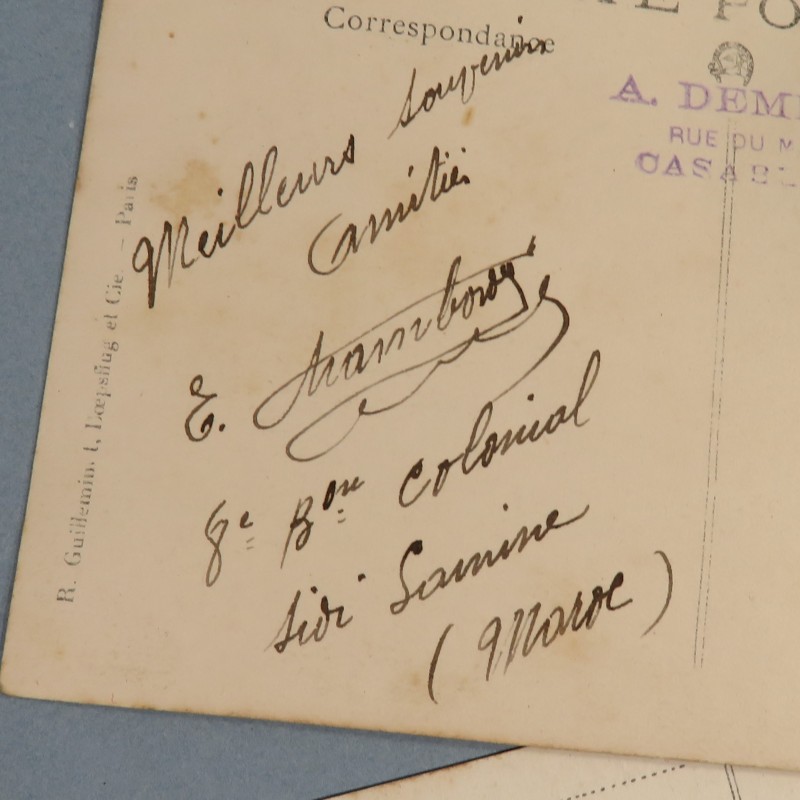 Correspondance
A. DEM
RUE DU M
CASABL
Meilleurs souvenirs
Amitiés
E.
8e Bon Colonial
Sidi Lamine
(Maroc)
R. Guillemin. 1, Lœpsflug et Cie. – Paris